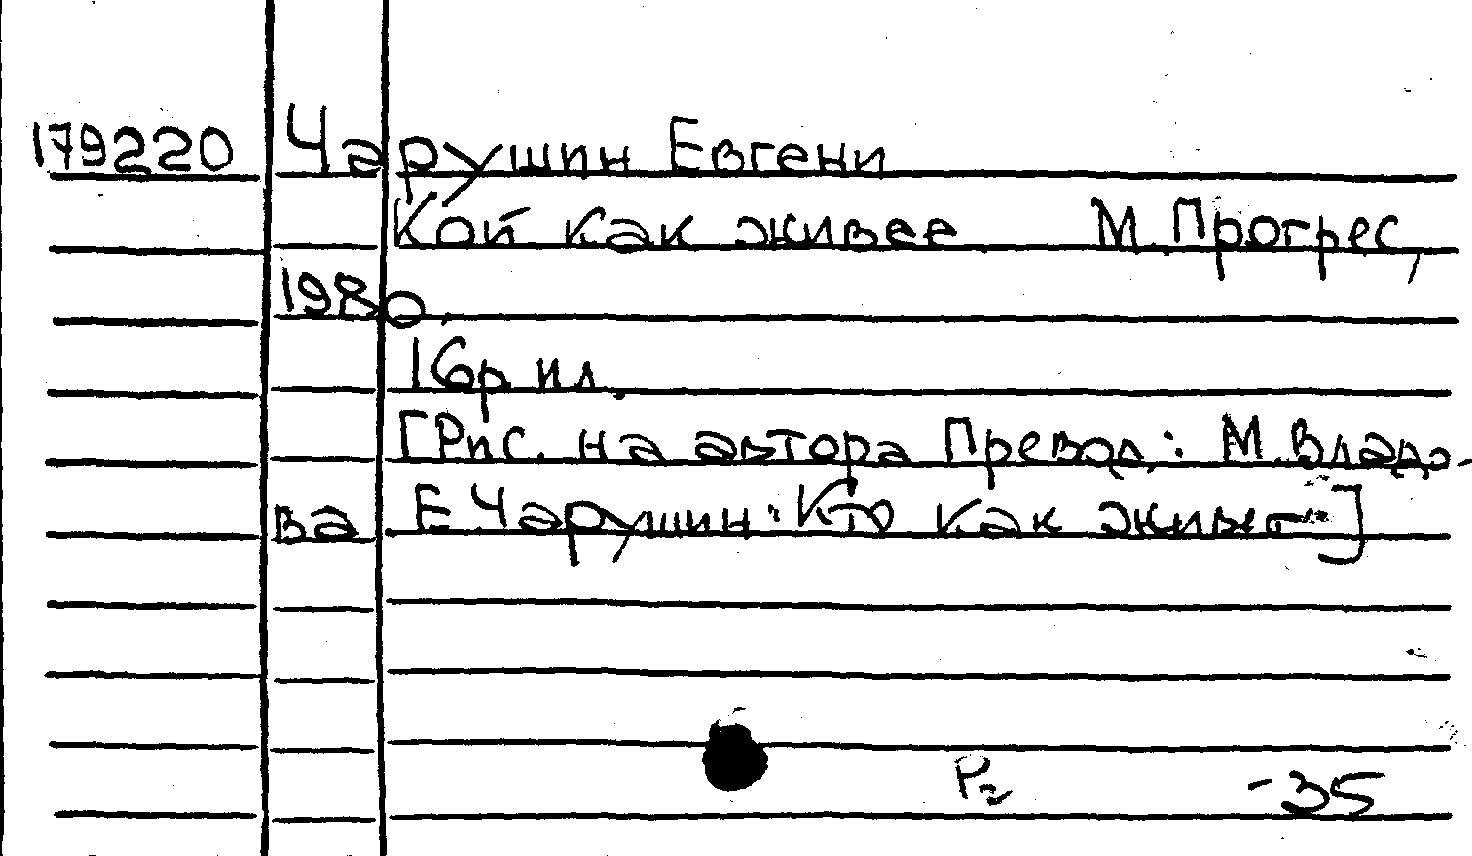 179220 Чарушин Евгени
Кой как живее М. Прогрес,
1980.
16р ил.
[Рис. на автора Превод.: М. Владо-
ва Е. Чарушин: Кто как живет]
P2 -35